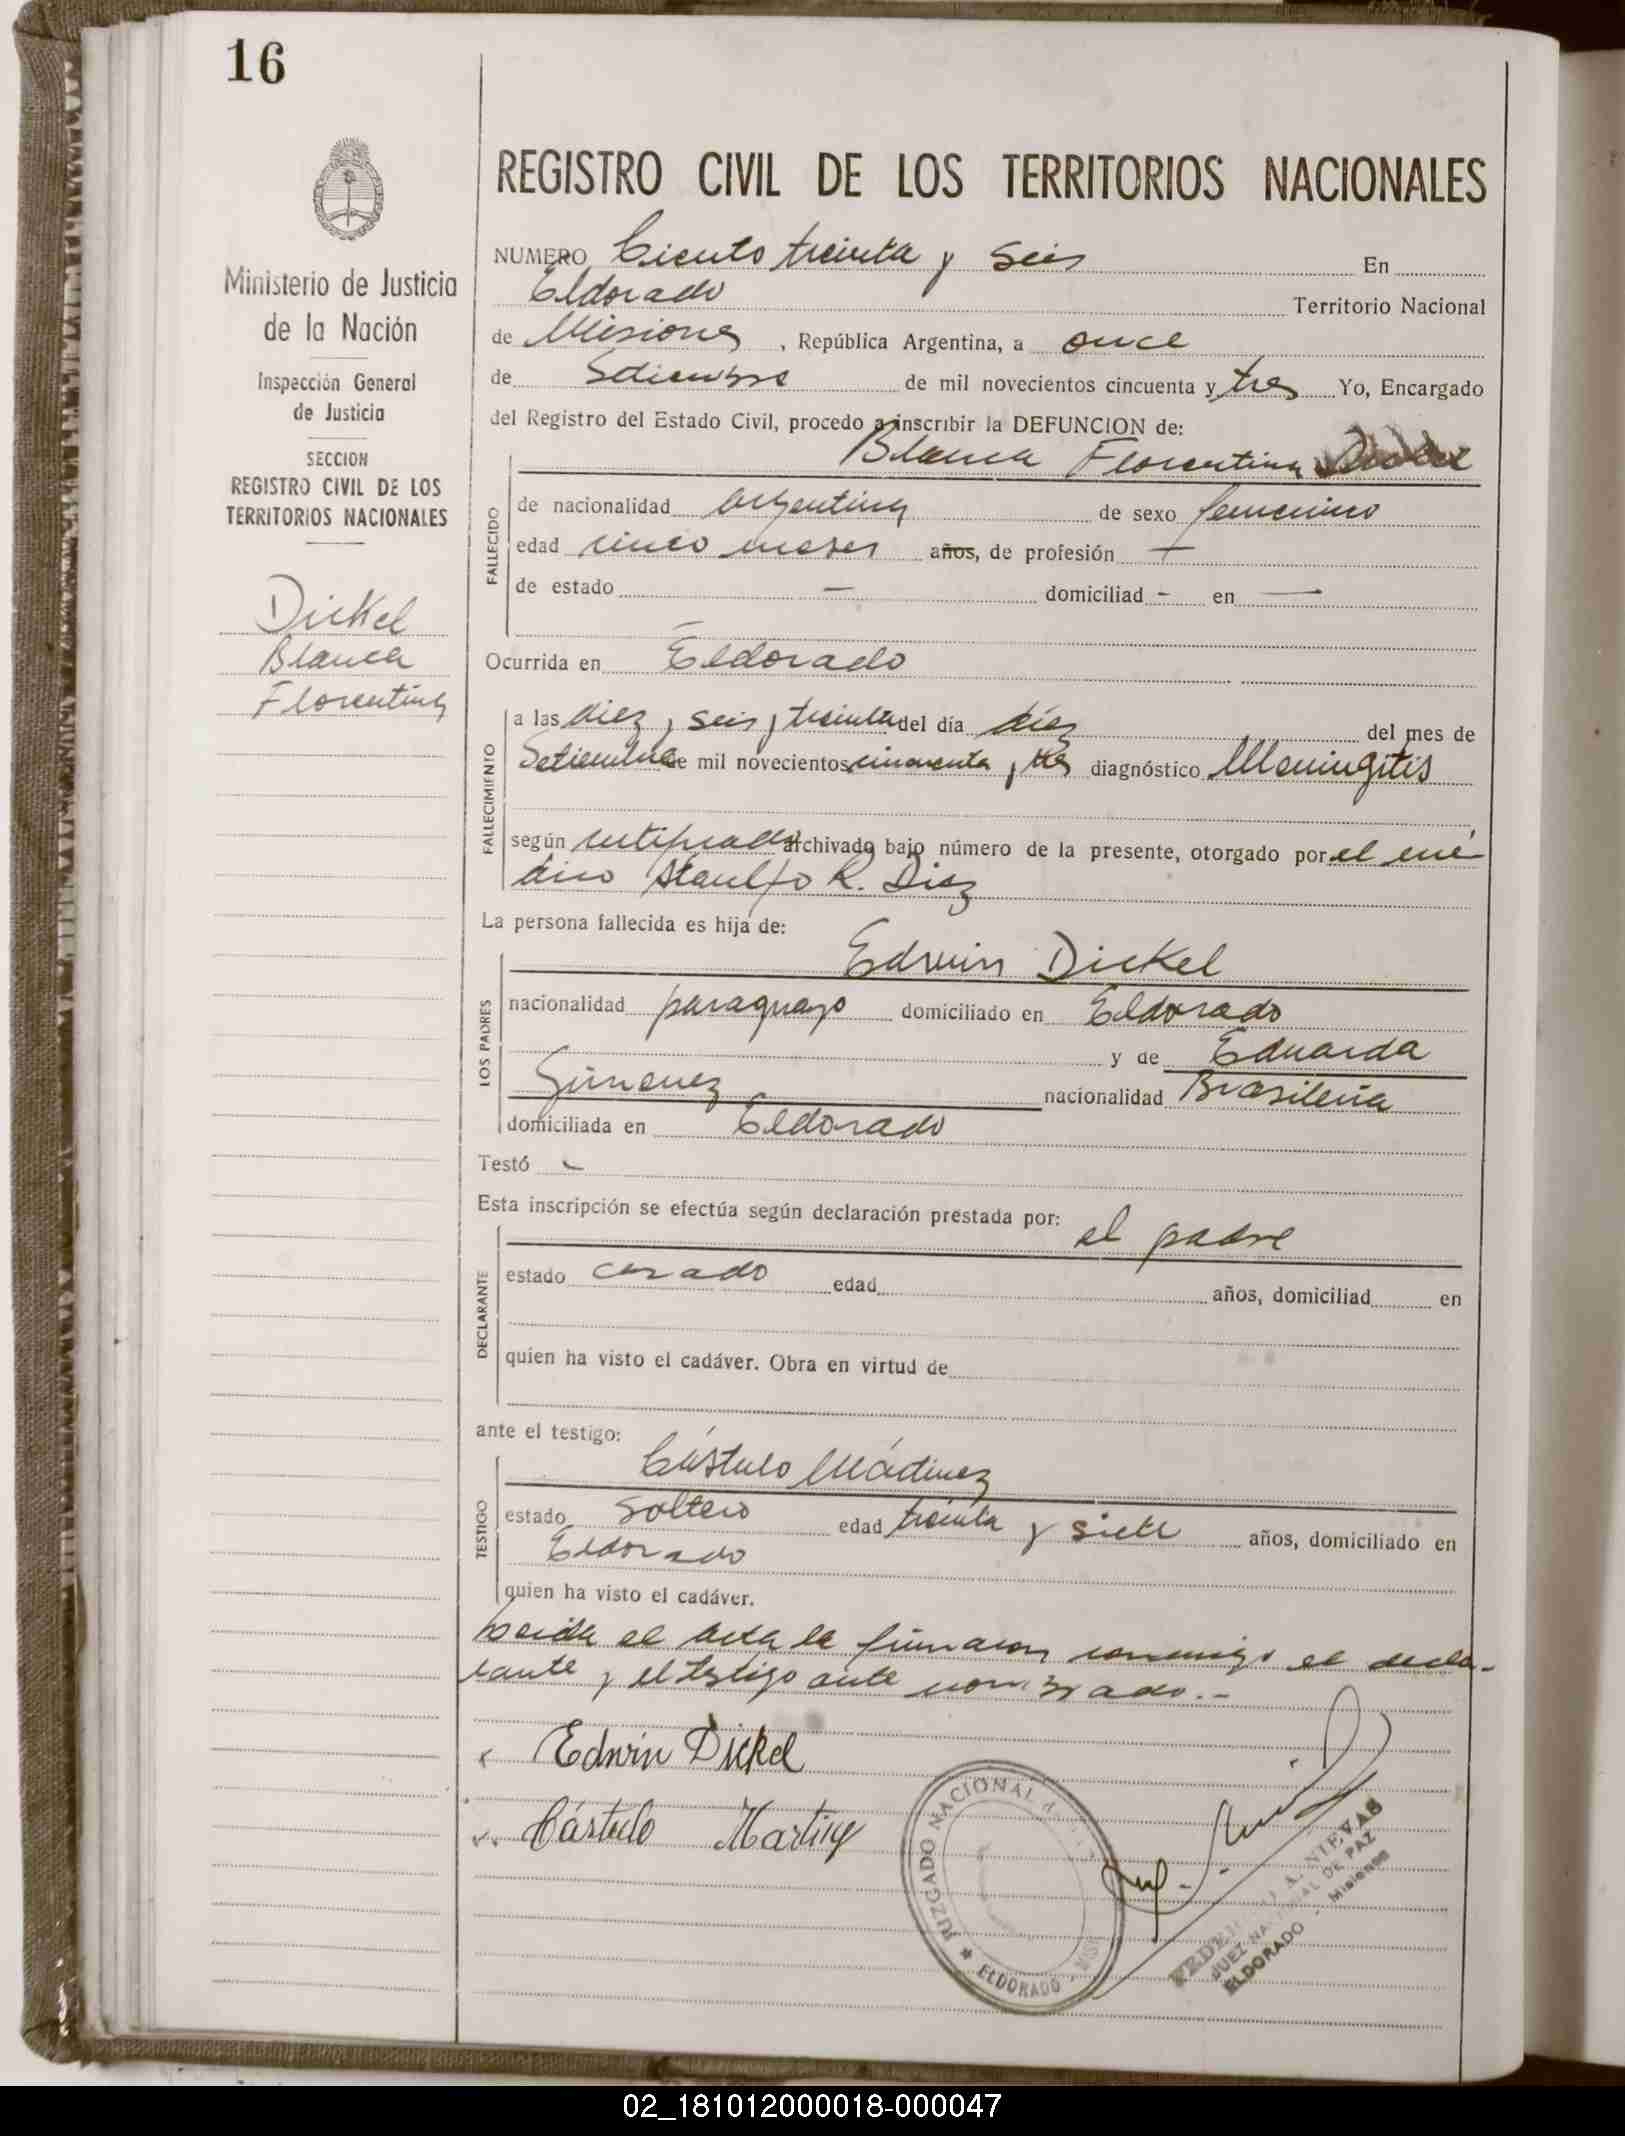 16
REGISTRO CIVIL DE LOS TERRITORIOS NACIONALES
Ministerio de Justicia
de la Nación
Inspección General
de Justicia
SECCION
REGISTRO CIVIL DE LOS
TERRITORIOS NACIONALES
Dickel
Blanca
Florentina
NUMERO Ciento treinta y seis En
Eldorado Territorio Nacional
de Misiones, República Argentina, a once
de Setiembre de mil novecientos cincuenta y tres Yo, Encargado
del Registro del Estado Civil, procedo a inscribir la DEFUNCION de:
Blanca Florentina Dickel
FALLECIDO
de nacionalidad argentina de sexo femenino
edad cinco meses años, de profesión —
de estado — domiciliad - en —
Ocurrida en Eldorado
FALLECIMIENTO
a las diez y seis y treinta del día diez del mes de
Setiembre de mil novecientos cincuenta y tres diagnóstico Meningitis
según certificado archivado bajo número de la presente, otorgado por el mé
dico Ataulfo R. Diaz
La persona fallecida es hija de:
Edwin Dickel
LOS PADRES
nacionalidad paraguayo domiciliado en Eldorado
y de Eduarda
Gimenez nacionalidad Brasileña
domiciliada en Eldorado
Testó -
Esta inscripción se efectúa según declaración prestada por:
el padre
DECLARANTE
estado casado edad años, domiciliad en
quien ha visto el cadáver. Obra en virtud de
ante el testigo:
Cástulo Mártinez
TESTIGO
estado soltero edad treinta y siete años, domiciliado en
Eldorado
quien ha visto el cadáver.
Leida el acta la firmaron conmigo el decla-
rante y el testigo ante nombrado.-
Edwin Dickel
Cástulo Martinez
JUZGADO NACIONAL de
★ ELDORADO - MIS
A. NIEVAS
JUEZ NACIONAL DE PAZ
ELDORADO - Misiones
02_181012000018-000047